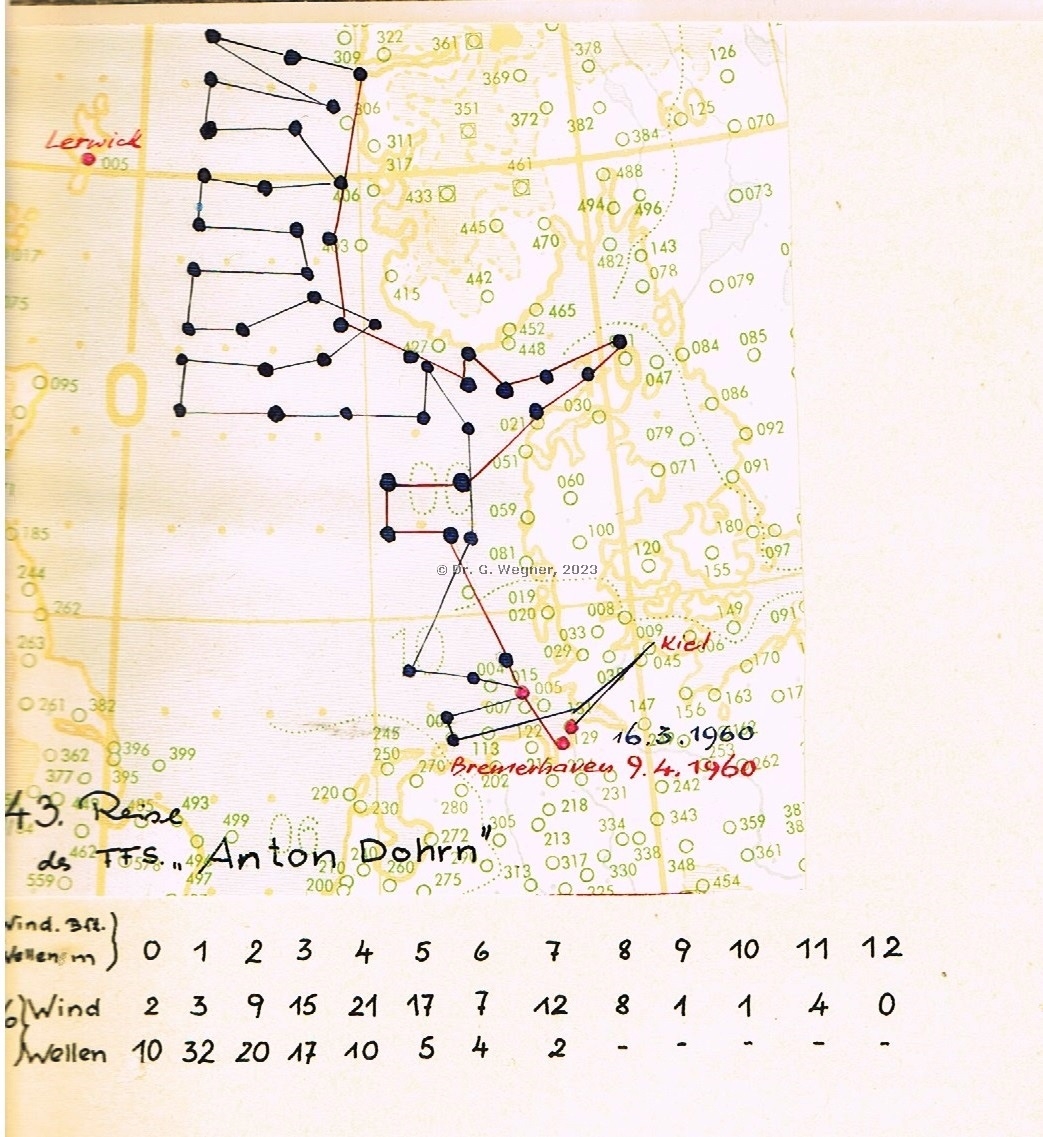 322
361
378
126
309
369
306
351
372
382
125
384
070
Lerwick
311
005
317
461
488
406
433
073
494
496
445
470
143
482
017
078
079
442
415
465
452
427
448
085
084
047
095
0
086
030
021
092
079
051
071
091
060
059
185
100
180
120
097
081
155
© Dr. G. Wegner, 2023
244
019
262
020
008
149
091
10
033
009
Kiel
263
029
045
170
004
015
005
163
261
382
007
147
156
245
122
129
16.3.1960
362
396
399
250
113
253
377
395
270
Bremerhaven 9.4.1960
262
202
231
242
220
493
230
280
218
343
43. Reise
499
305
334
359
272
213
338
361
462
des FFS. „Anton Dohrn"
317
348
210
260
330
559
497
200
275
313
454
225
Wind. Bft.
Wellen m } 0 1 2 3 4 5 6 7 8 9 10 11 12
Wind 2 3 9 15 21 17 7 12 8 1 1 4 0
Wellen 10 32 20 17 10 5 4 2 - - - - -